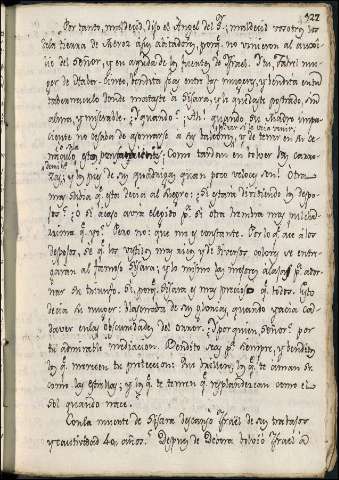 322
Por tanto, maldecid, dijo el Angel del S.r; maldecid vosotros los
tierra de Meroz a sus avitadores, porq. no vinieron al auxi-
lio del Señor, y en ayuda de los fuertes de Israel. Jael,
ger de Haber Cineo, bendita seas entre las mugeres, y bendita en tu
tabernaculo donde mataste a Sisara, y le quedaste postrado, sin
alma, y miserable. ¿Y quando? ¡Ah! quando su Madre impa-
ciente no desaba de asomarse a su balcon, y de tener en su ce-
naculo esta: ¿Como tardan en bolver las carro-
zas, y los pies de sus quadrigas, quan poco veloces son! Otra
muy sabia q. esta decia al suegro: ¿Si estara dividiendo los despo-
jos? ¿O si acaso avra elegido p. si otra hembra muy
q. yo? Pero no: que me es constante. Por lo q. ace a los
despojos, se q. los vestidos mas ricos, y de diversos colores se entre-
garan al famoso Sisara; y lo mismo las mejores alajas p. ador-
nar su triunfo. Si, porq. Sisara es mas precioso q. todos. Esto
decia su muger: blasonaba de sus glorias, quando yacia ca-
daver en las obscuridades del error. ¿Y por quien, Señor? por
tu admirable mediacion. Bendito seas p. siempre, y benditos
los q. merecen tu proteccion: Asi brillen los q. te aman
como las estrellas; y los q. te temen q. resplandezcan como el
Sol quando nace.
Con la muerte de Sisara descansó Israel de sus trabajos
y cautividad 40 años. Despues de Debora bolvió Israel a